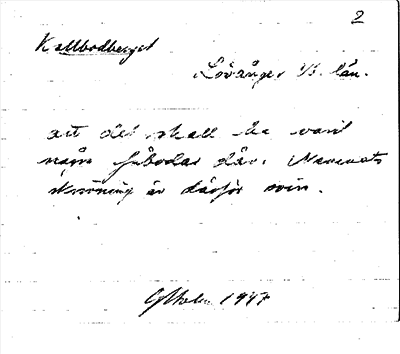 2
Kallbodberget
Lövånger Vb. län.
att det skall ha varit
några fäbodar där. Namnets
skrivning är därför min.
Gfholm 1947